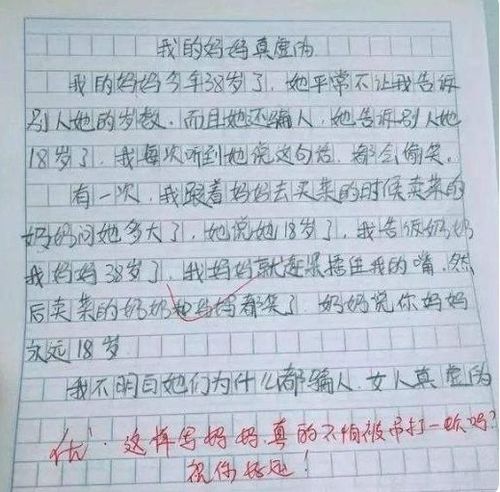 我的妈妈真虚伪
我的妈妈今年38岁了,她平常不让我告诉
别人她的岁数.而且她还骗人,她告诉别人她
18岁了,我每次听到她说这句话,都会偷笑.
有一次,我跟着妈妈去买菜的时候卖菜的
奶奶问她多大了,她说她18岁了,我告饭奶奶
我妈妈38岁了,我妈妈就赶紧捂住我的嘴,然
后卖菜的奶奶和妈妈都笑了.奶奶说你妈妈
永远18岁
我不明白她们为什么都骗人.女人真虚伪
优.这样写妈妈,真的不怕被吊打一顿吗?
祝你好运!